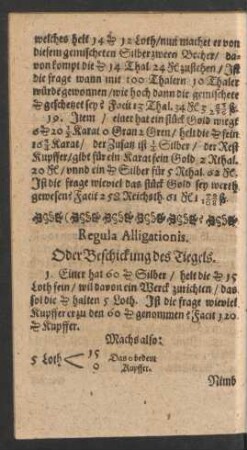 welches helt 14 ℔ 12 Loth/nun machet er von
diesem gemischeten Silber zween Becher/ da-
von kompt die ℔ 14 Thal. 24 ßl zustehen / Ist
die frage wann mit 100 Thalern 10 Thaler
würde gewonnen/wie hoch dann die gemischete
℔ geschetzet sey? Facit 15 Thal. 34 ßl
19. Item / einer hat ein stück Gold wiegt
Karat 0 Gran 2 Gren/ helt die ℔ fein
Karat/ der Zusatz ist ½ Silber / der Rest
Kupffer/gibt für ein Karat fein Gold 2 Rthal.
20 ßl/ vnnd ein ℔ Silber für 5 Rthal. 62 ßl.
Ist die frage wieviel das stück Gold sey werth
gewesen? Facit 252 Reichsth 61 ßl
Regula Alligationis.
Oder Beschickung des Tiegels.
1. Einer hat 60 ℔ Silber / helt die ℔ 15
Loth fein / wil davon ein Werck zurichten / das
sol die ℔ halten 5 Loth. Ist die frage wieviel
Kupffer er zu den 60 ℔ genommen? Facit 120.
℔ Kupffer.
Machs also:
5 Loth < 15
0 Das 0 bedeut
Kupffer.
Nimb